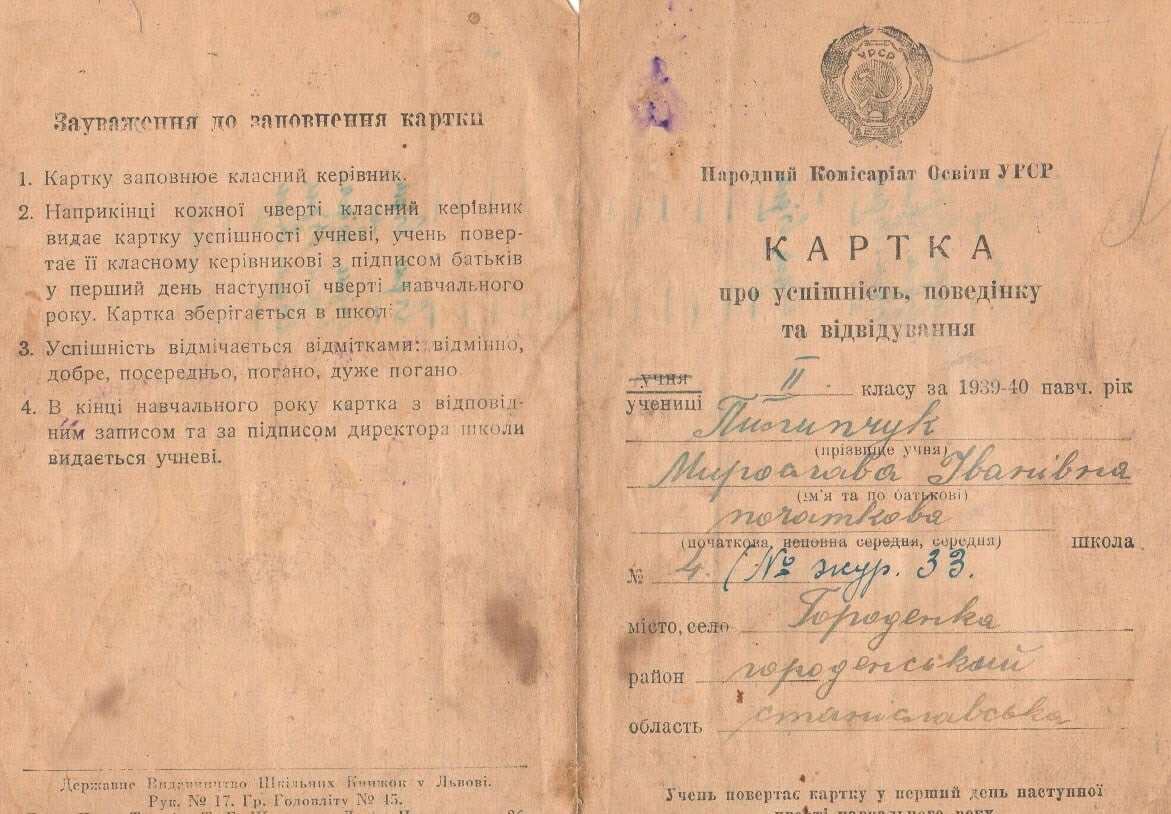 Зауваження до заповнення картки
1. Картку заповнює класний керівник.
2. Наприкінці кожної чверті класний керівник
видає картку успішності учневі, учень повер-
тає її класному керівникові з підписом батьків
у перший день наступної чверті навчального
року. Картка зберігається в школі
3. Успішність відмічається відмітками: відмінно,
добре, посередньо, погано, дуже погано
4. В кінці навчального року картка з відповід-
ним записом та за підписом директора школи
видається учневі.
Державне Видавництво Шкільних Книжок у Львові.
Рук. № 17. Гр. Головліту № 45.
УРСР
Народний Комісаріат Освіти УРСР
КАРТКА
про успішність, поведінку
та відвідування
учня
учениці II класу за 1939-40 навч. рік
Пилипчук
(прізвище учня)
Мирослава Іванівна
(ім'я та по батькові)
початкова
(початкова, неповна середня, середня) школа
№ 4. (№ жур. 33.
місто, село Городенка
район городенський
область станиславська
Учень повертає картку у перший день наступної
чверті навчального року